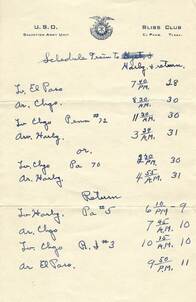 U.S.O. BLISS CLUB
SALVATION ARMY UNIT EL PASO, TEXAS
Schedule Train to
Harbg. & return.
Lv. El Paso 7 40 P.M. 28
Ar. Chgo 8 30 A.M. 30
Lv Chgo Penn #72 11 30 A.M. 30
Arr. Harbg. 3 20 A.M. 31
or.
Lv. Chgo Pa 70 2 30 P.M. 30
Ar. Harbg. 4 55 A.M. 31
Return
Lv Harbg. Pa #5 6 10 P.M. - 9
Ar. Chgo. 7 45 A.M. 10
Lv. Chgo R.I #3 10 15 A.M. 10
Ar El Paso. 9 50 P.M. 11